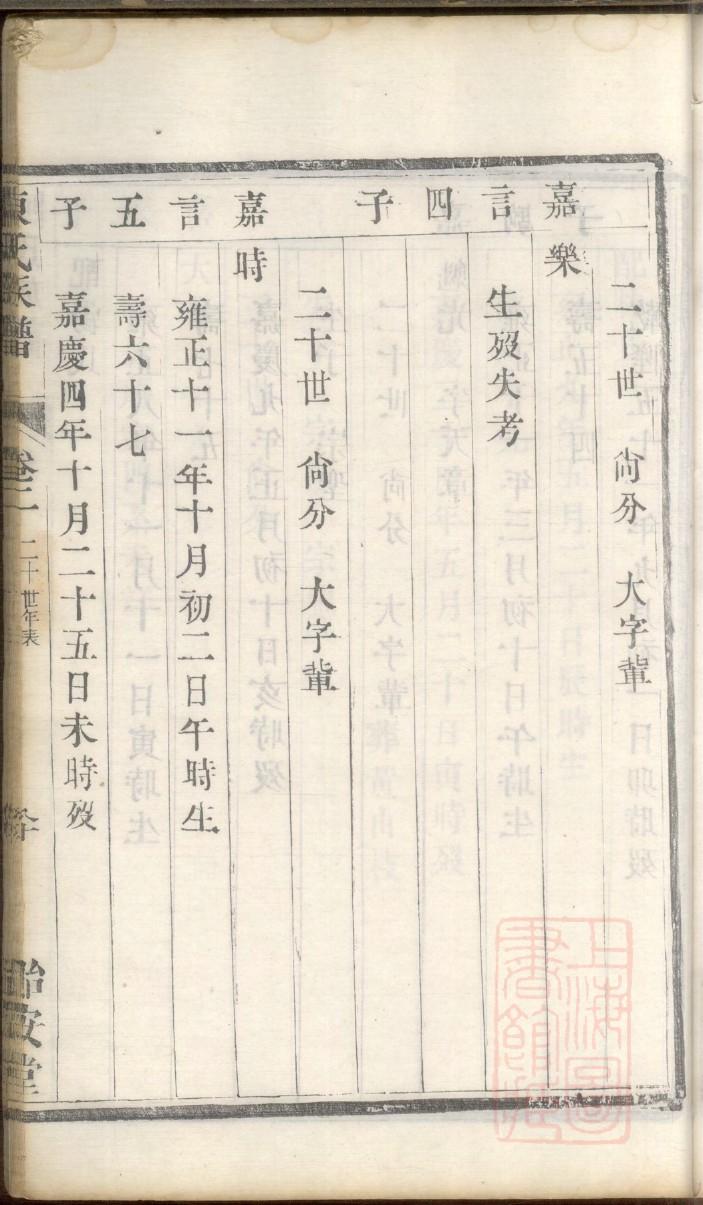 二十世　尙分　大字輩
嘉言四子
樂
生歿失考
二十世　尙分　大字輩
嘉言五子
時
雍正十一年十月初二日午時生
壽六十七
嘉慶四年十月二十五日未時歿
氏族譜
卷二
二十世年表
上海圖書館藏